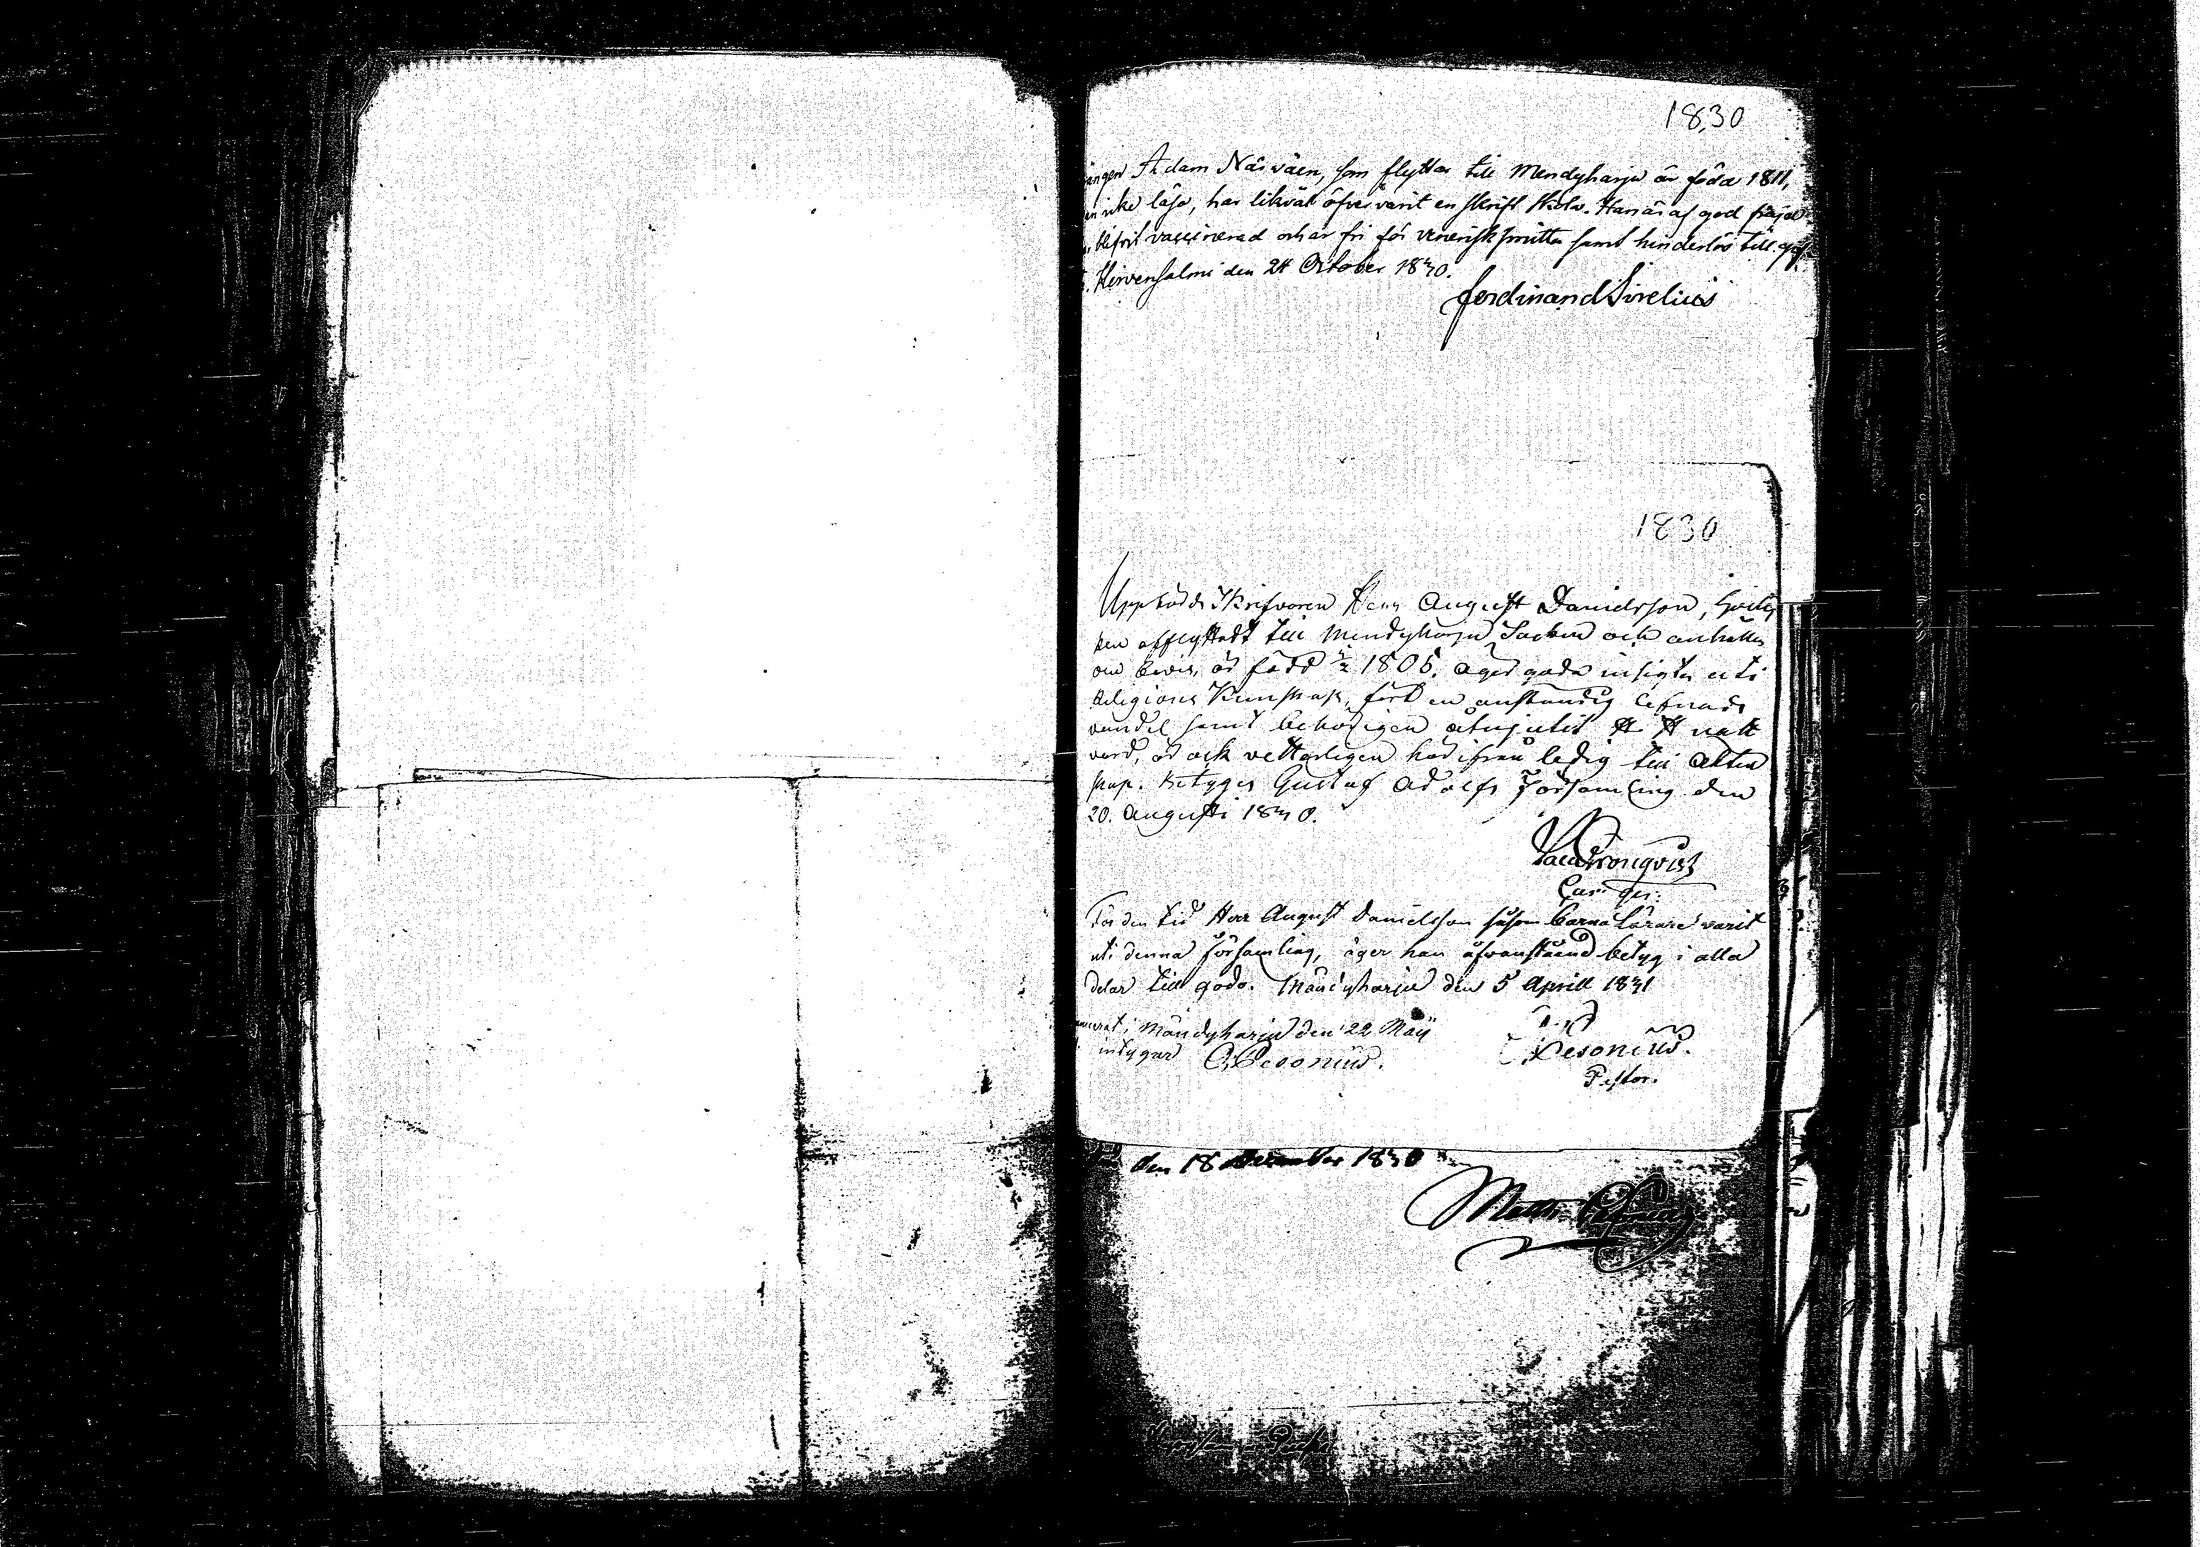 1830
Adam Näsväen, som flyttar till Mendyharju är föda 1811,
icke läsa, har likväl öfvervarit en skrift skola. Han är af god fräjd
blifvit vaccinerad och är fri för venerisk smitta samt hinderlös till
Hirvensalmi den 24 October 1830.
Ferdinand Sirelius
1830
Uppbörds Skrifvaren Herr August Danielsson, hvil
ken afflyttadt till Mendyharju Socken och anhåller
om bevis, är född 1806. äger goda insigter uti
Religions Kunskap, fört en anständig lefnads
vandel samt behörigen åtnjutit H H natt
vard, är ock vetterligen härifrån ledig till äkten
skap. Betygas Gustaf Adolfs Församling den
20. Augusti 1830.
För den tid Herr August Danielsson såsom barnalärare varit
uti denna församling, äger han ofvanstående betyg i alla
delar till godo. Mändyharju den 5 Aprill 1831
i Mändyharju den 22 Maij
intygar Pesonius.
Pesonius.
Pastor.
den 18 December 1830
Matth.